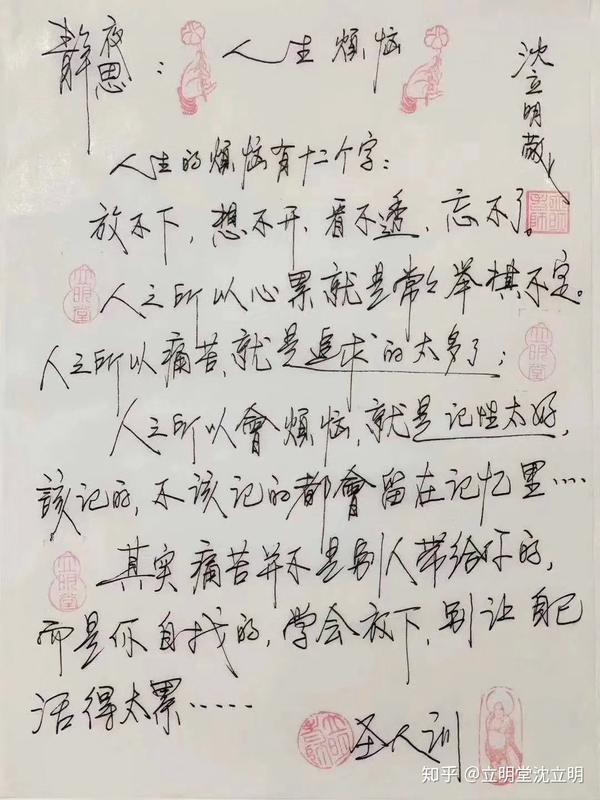 静夜思：人生煩惱
沈立明敬
人生的煩惱有十二个字：
放不下，想不开，看不透，忘不了。
人之所以心累就是常々举棋不定。
人之所以痛苦，就是追求的太多了；
人之所以會煩惱，就是记性太好，
該记的，不该记的都會留在记忆里……
其实痛苦并不是别人带给你的，
而是你自找的，学会放下，别让自己
活得太累……
圣人训
立明堂
立明堂
立明堂
知乎 @立明堂沈立明